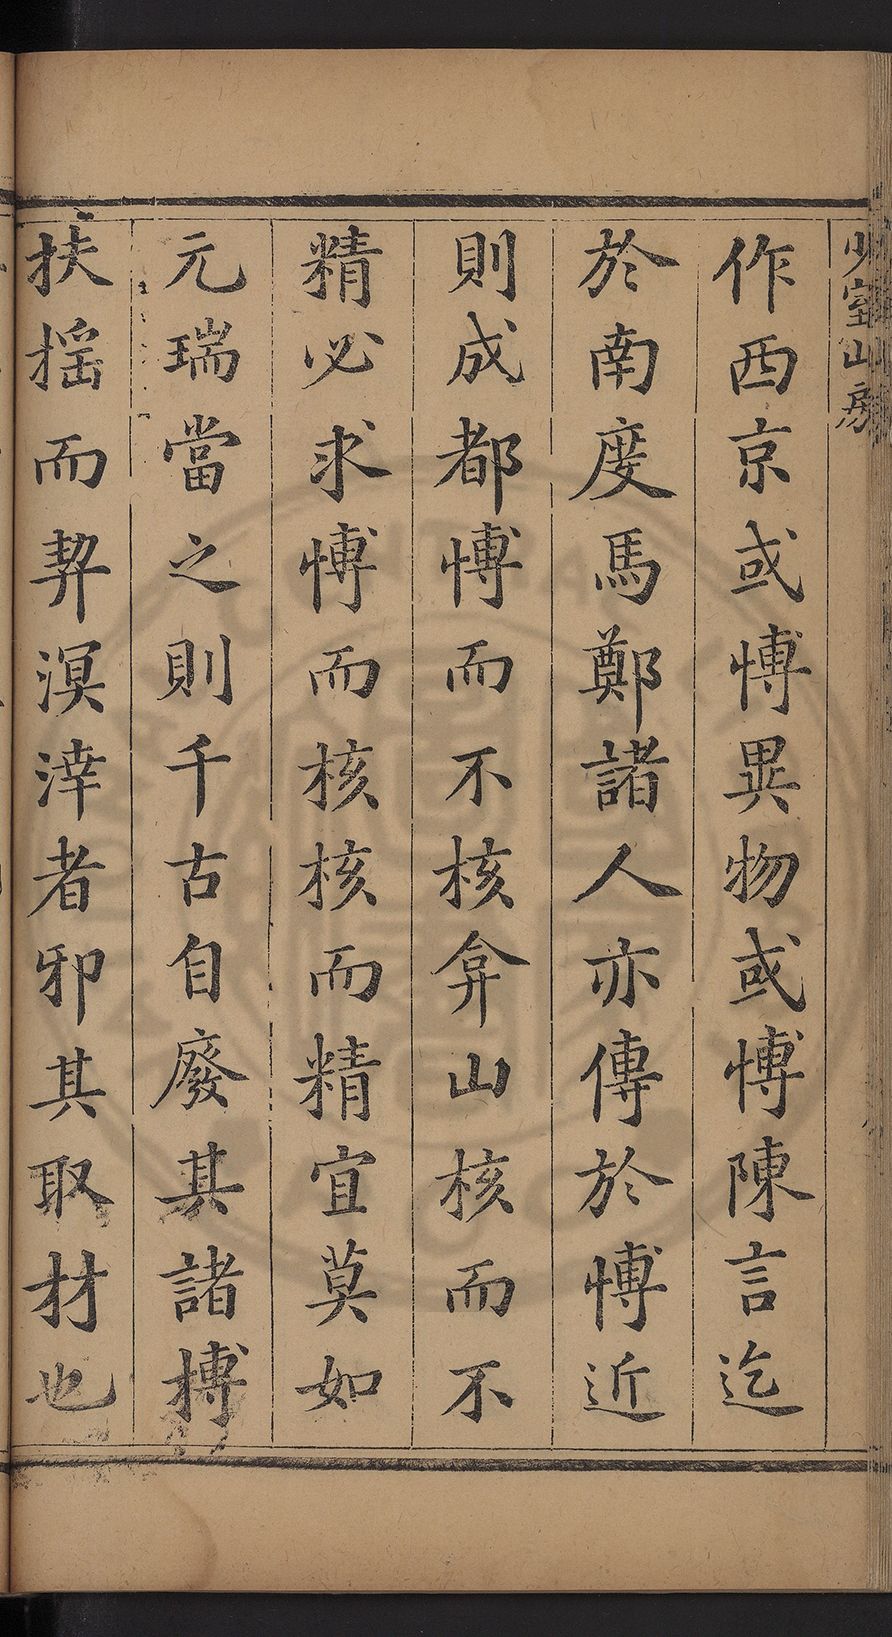 少室山房
作西京或愽異物或愽陳言迄
於南度馬鄭諸人亦傳於愽近
則成都愽而不核弇山核而不
精必求愽而核核而精宜莫如
元瑞當之則千古自廢其諸搏
扶搖而契溟涬者邪其取材也